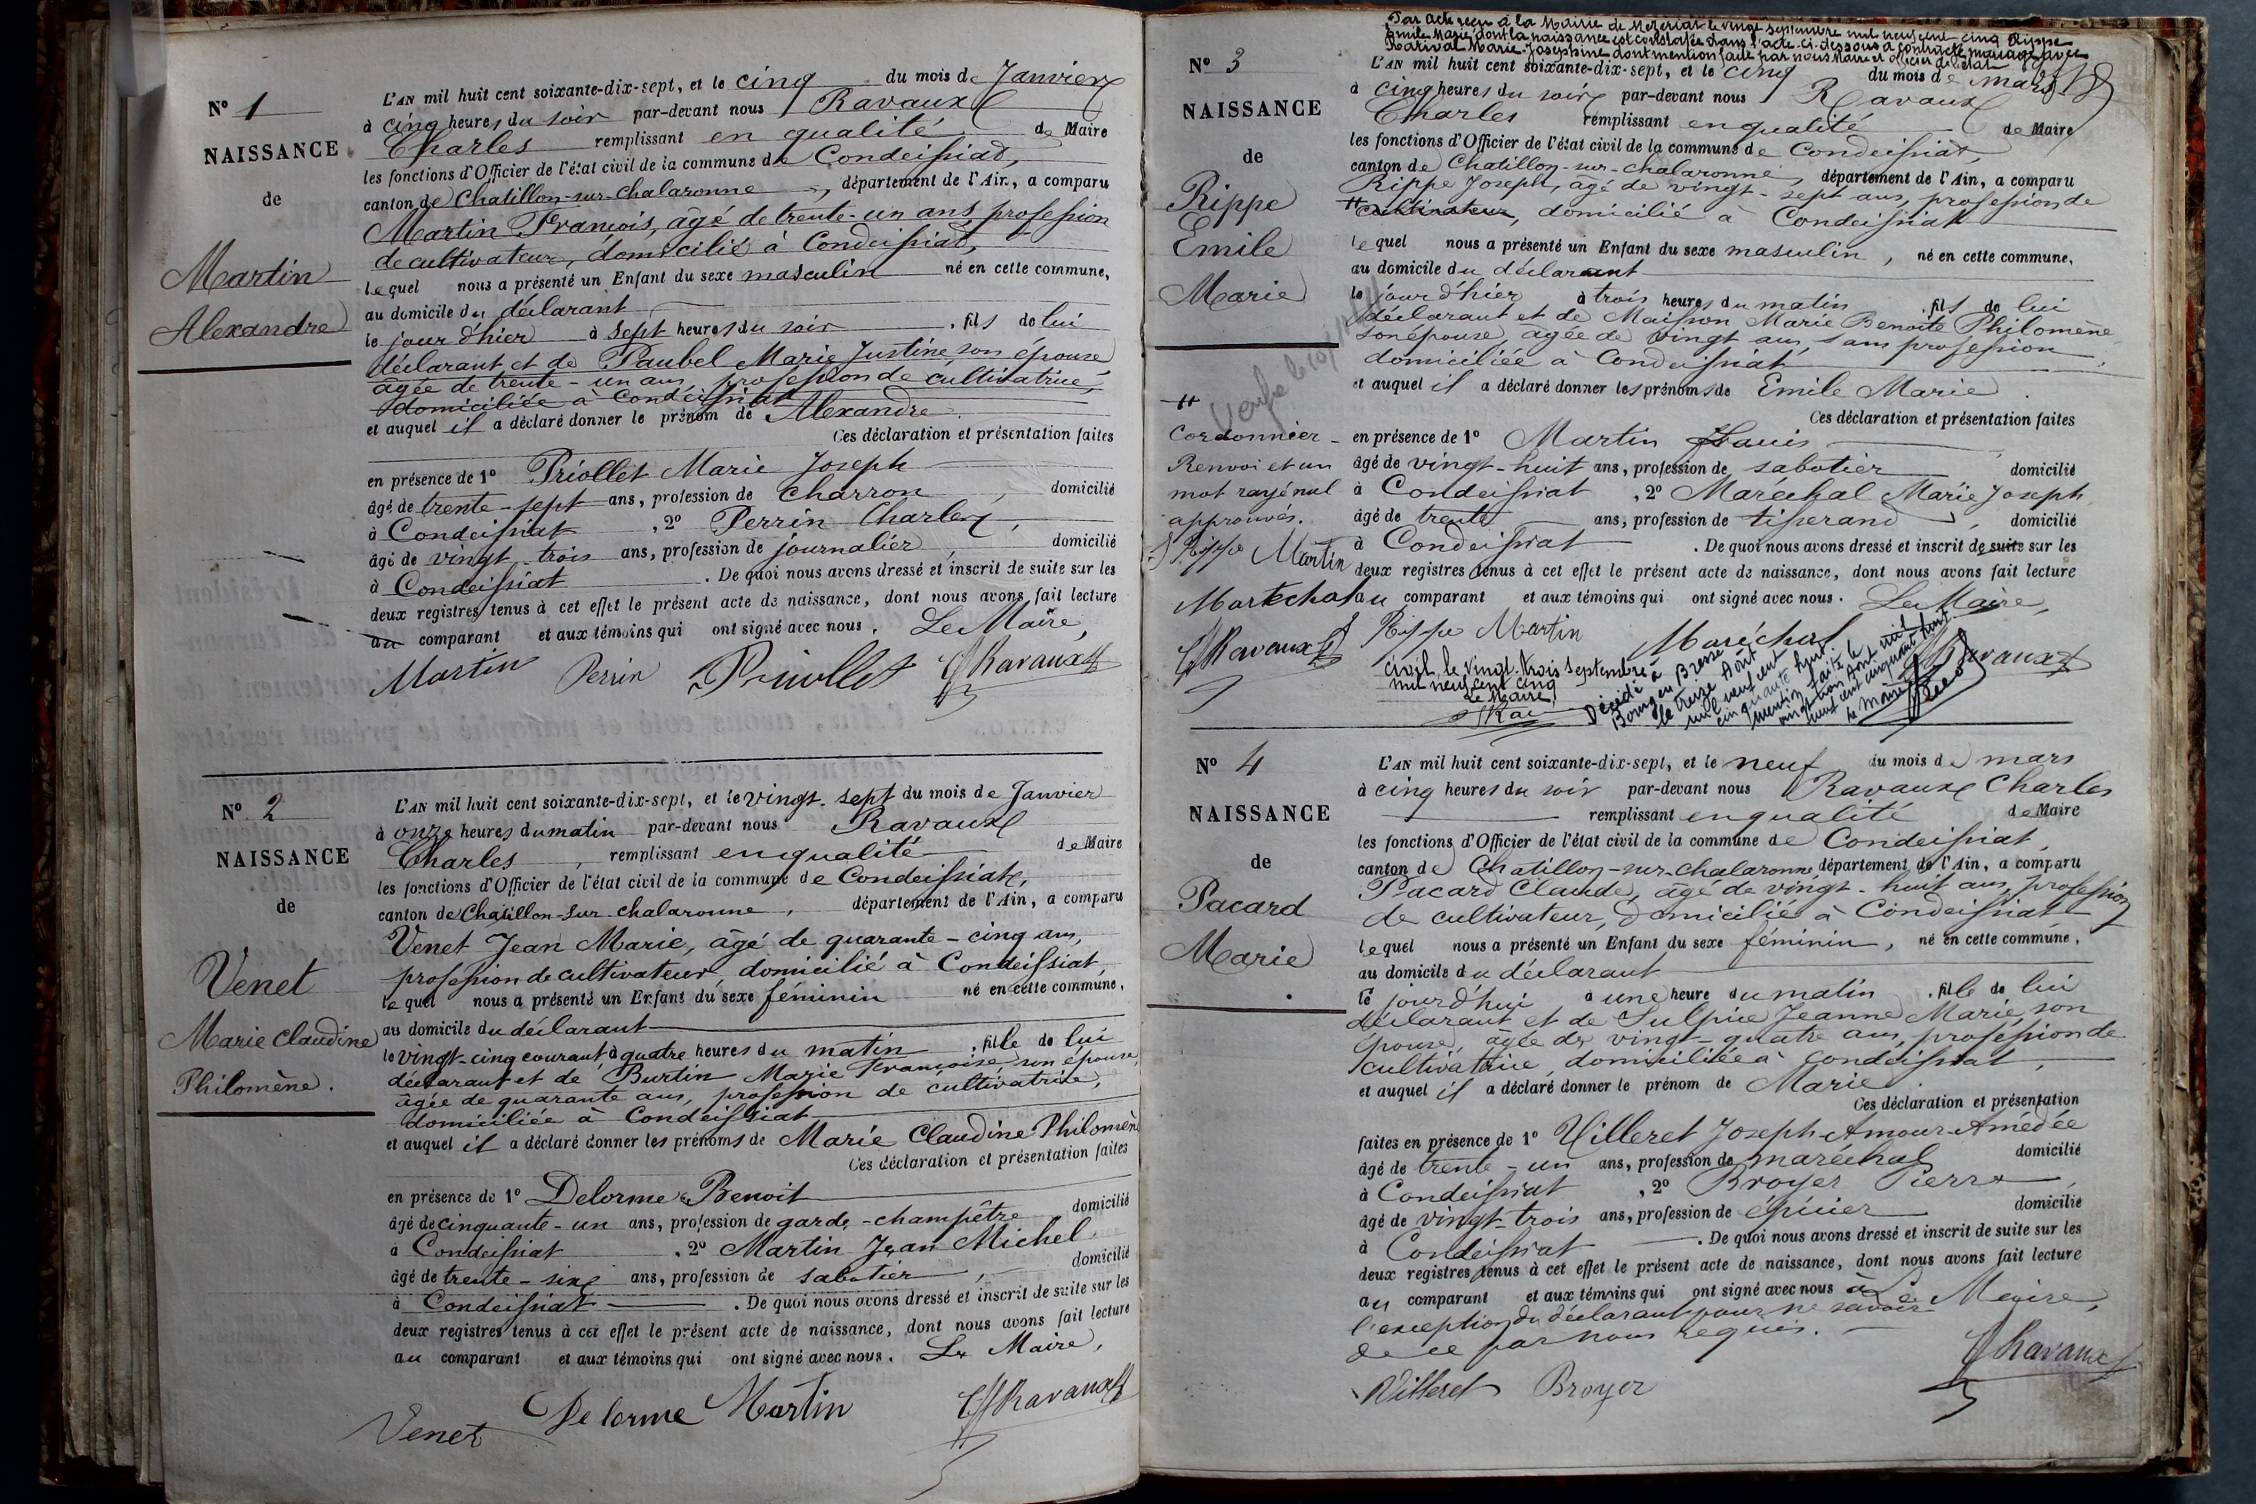 N° 1
NAISSANCE
de
Martin
Alexandre
L'AN mil huit cent soixante-dix-sept, et le cinq du mois de Janvier
à cinq heures du soir par-devant nous Ravaux
Charles remplissant en qualité de Maire
les fonctions d'Officier de l'état civil de la commune de Condeissiat,
canton de Chatillon-sur-chalaronne, département de l'Ain, a comparu
Martin François, âgé de trente-un ans, profession
de cultivateur, domicilié à Condeissiat,
lequel nous a présenté un Enfant du sexe masculin né en cette commune,
au domicile du déclarant
le jour d'hier à sept heures du soir, fils de lui
déclarant et de Paubel Marie Justine son épouse,
âgée de trente-un ans, profession de cultivatrice,
domiciliée à Condeissiat
et auquel il a déclaré donner le prénom de Alexandre.
Ces déclaration et présentation faites
en présence de 1° Priollet Marie Joseph
âgé de trente-sept ans, profession de charron, domicilié
à Condeissiat, 2° Perrin Charles,
âgé de vingt-trois ans, profession de journalier, domicilié
à Condeissiat. De quoi nous avons dressé et inscrit de suite sur les
deux registres tenus à cet effet le présent acte de naissance, dont nous avons fait lecture
au comparant et aux témoins qui ont signé avec nous. Le Maire,
Martin Perrin Priollet Ravaux
N° 2
NAISSANCE
de
Venet
Marie Claudine
Philomène.
L'AN mil huit cent soixante-dix-sept, et le vingt-sept du mois de Janvier
à onze heures du matin par-devant nous Ravaux
Charles, remplissant en qualité de Maire
les fonctions d'Officier de l'état civil de la commune de Condeissiat,
canton de Chatillon-sur-chalaronne, département de l'Ain, a comparu
Venet Jean Marie, âgé de quarante-cinq ans,
profession de cultivateur domicilié à Condeissiat,
lequel nous a présenté un Enfant du sexe féminin né en cette commune,
au domicile du déclarant
le vingt-cinq courant à quatre heures du matin, fille de lui
déclarant et de Burtin Marie Françoise, son épouse,
âgée de quarante ans, profession de cultivatrice,
domiciliée à Condeissiat
et auquel il a déclaré donner les prénoms de Marie Claudine Philomène
Ces déclaration et présentation faites
en présence de 1° Delorme Benoit
âgé de cinquante-un ans, profession de garde-champêtre domicilié
à Condeissiat, 2° Martin Jean Michel
âgé de trente-six ans, profession de sabotier, domicilié
à Condeissiat. De quoi nous avons dressé et inscrit de suite sur les
deux registres tenus à cet effet le présent acte de naissance, dont nous avons fait lecture
au comparant et aux témoins qui ont signé avec nous. Le Maire,
Venet Delorme Martin Ravaux
Par acte reçu à la Mairie de le vingt septembre mil neuf cent cinq Rippe
Emile Marie, dont la naissance est constatée dans l'acte ci-dessous a contracté mariage avec
Marie Joséphine dont mention faite par nous Maire et officier de l'état
N° 3
NAISSANCE
de
Rippe
Emile
Marie
Cordonnier
Renvoi et un
mot rayé nul
approuvés.
J. Rippe Martin
Maréchal
Ravaux
L'AN mil huit cent soixante-dix-sept, et le cinq du mois de mars
à cinq heures du soir par-devant nous Ravaux
Charles remplissant en qualité de Maire
les fonctions d'Officier de l'état civil de la commune de Condeissiat,
canton de Chatillon-sur-chalaronne, département de l'Ain, a comparu
Rippe Joseph, âgé de vingt-sept ans, profession de
cultivateur, domicilié à Condeissiat
lequel nous a présenté un Enfant du sexe masculin, né en cette commune,
au domicile du déclarant
le jour d'hier à trois heures du matin, fils de lui
déclarant et de Maisson Marie Benoite Philomène
son épouse, âgée de vingt ans, sans profession
domiciliée à Condeissiat,
et auquel il a déclaré donner les prénoms de Emile Marie.
Ces déclaration et présentation faites
en présence de 1° Martin
âgé de vingt-huit ans, profession de sabotier domicilié
à Condeissiat, 2° Maréchal Marie Joseph,
âgé de trente ans, profession de tisserand, domicilié
à Condeissiat. De quoi nous avons dressé et inscrit de suite sur les
deux registres tenus à cet effet le présent acte de naissance, dont nous avons fait lecture
au comparant et aux témoins qui ont signé avec nous. Le Maire,
Rippe Martin Maréchal Ravaux
civil, le vingt-trois septembre
mil neuf cent cinq
Le Maire
Décédé à
Bourg en Bresse
le treize Août
mil neuf cent
cinquante huit.
Mention faite le
vingt Août mil
neuf cent cinquante huit
Le Maire
N° 4
NAISSANCE
de
Pacard
Marie
L'AN mil huit cent soixante-dix-sept, et le neuf du mois de mars
à cinq heures du soir par-devant nous Ravaux Charles
remplissant en qualité de Maire
les fonctions d'Officier de l'état civil de la commune de Condeissiat,
canton de Chatillon-sur-chalaronne, département de l'Ain, a comparu
Pacard Claude, âgé de vingt-huit ans, profession
de cultivateur, domicilié à Condeissiat
lequel nous a présenté un Enfant du sexe féminin, né en cette commune,
au domicile du déclarant
le jourd'hui à une heure du matin, fille de lui
déclarant et de Sulpice Jeanne Marie, son
épouse, âgée de vingt-quatre ans, profession de
cultivatrice, domiciliée à Condeissiat,
et auquel il a déclaré donner le prénom de Marie
Ces déclaration et présentation
faites en présence de 1° Villeret Joseph-Amour-Amédée
âgé de trente-un ans, profession de maréchal domicilié
à Condeissiat, 2° Broyer Pierre,
âgé de vingt-trois ans, profession de épicier domicilié
à Condeissiat. De quoi nous avons dressé et inscrit de suite sur les
deux registres tenus à cet effet le présent acte de naissance, dont nous avons fait lecture
au comparant et aux témoins qui ont signé avec nous à Le Maire,
l'exception du déclarant pour ne savoir
de ce par nous requis.
Villeret Broyer Ravaux